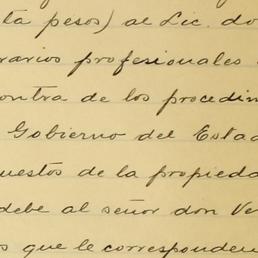 ta pesos) al Lic. do
rarios profesionales
ontra de los procedim
Gobierno del Estad
uestos de la propieda
debe al señor don Ve
os que le corresponden